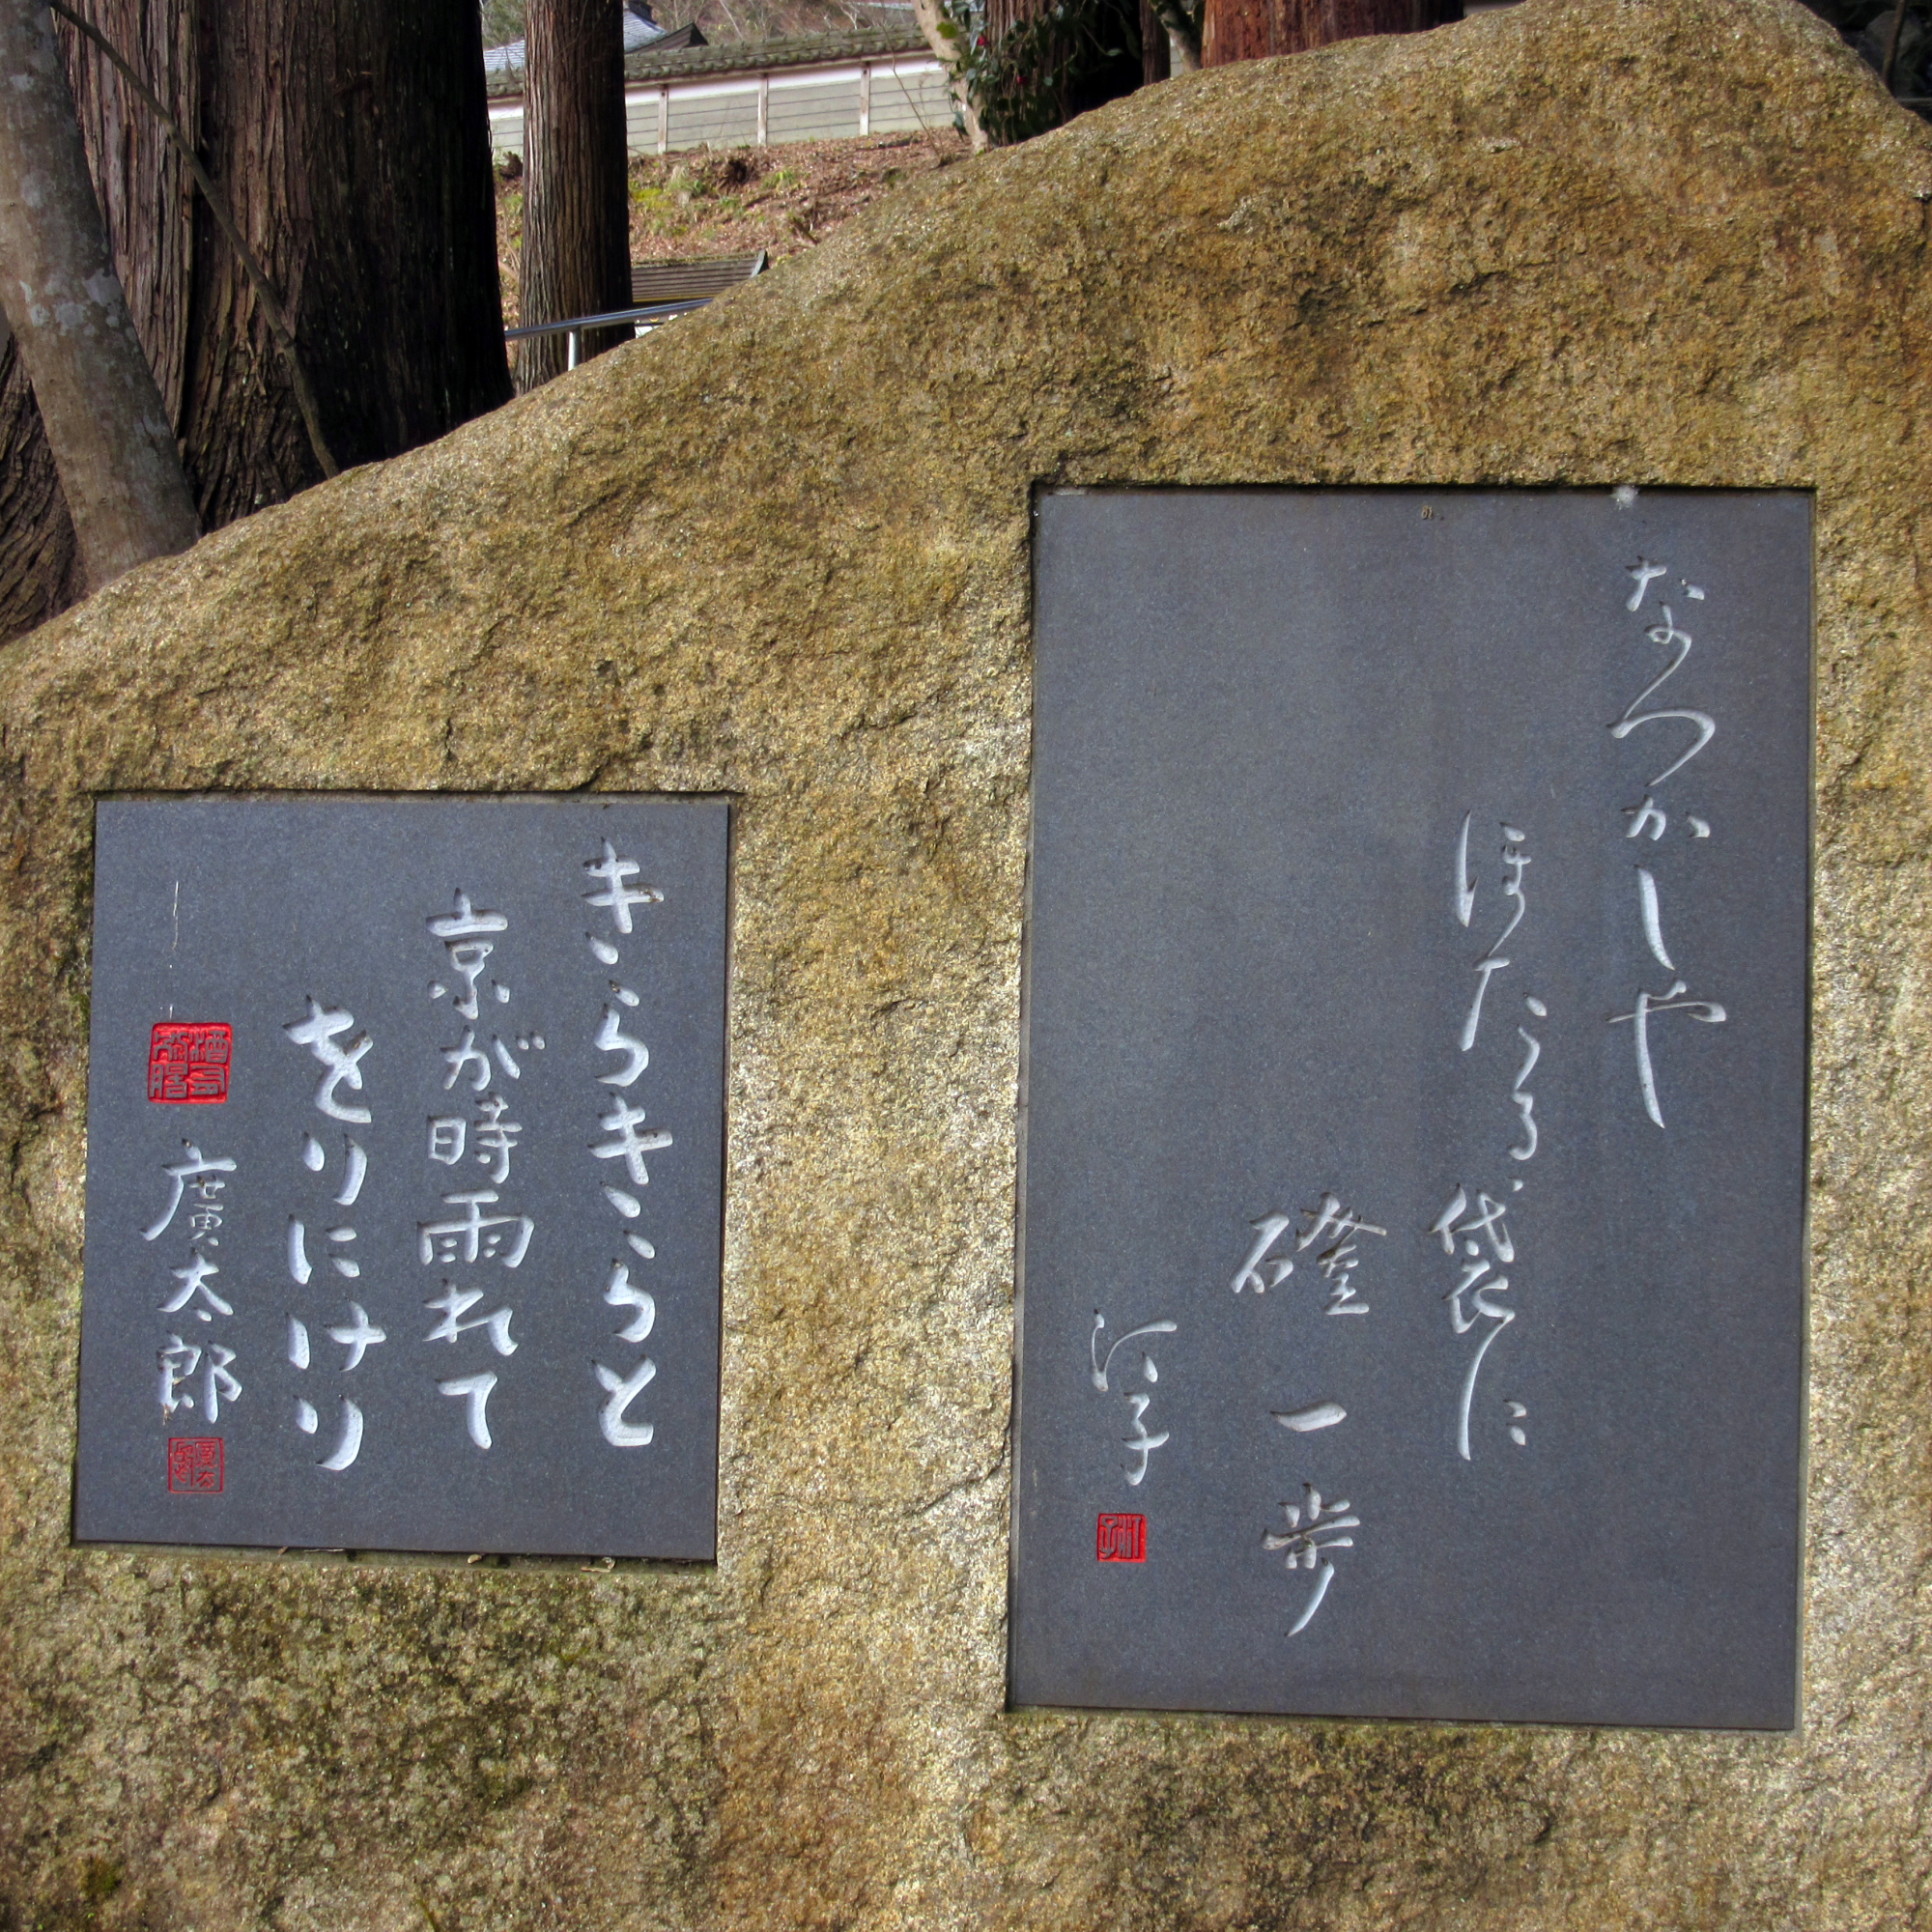 なつかしや
ほたる袋に
磴一歩
汀子
汀子
きらきらと
京が時雨れて
をりにけり
廣太郎